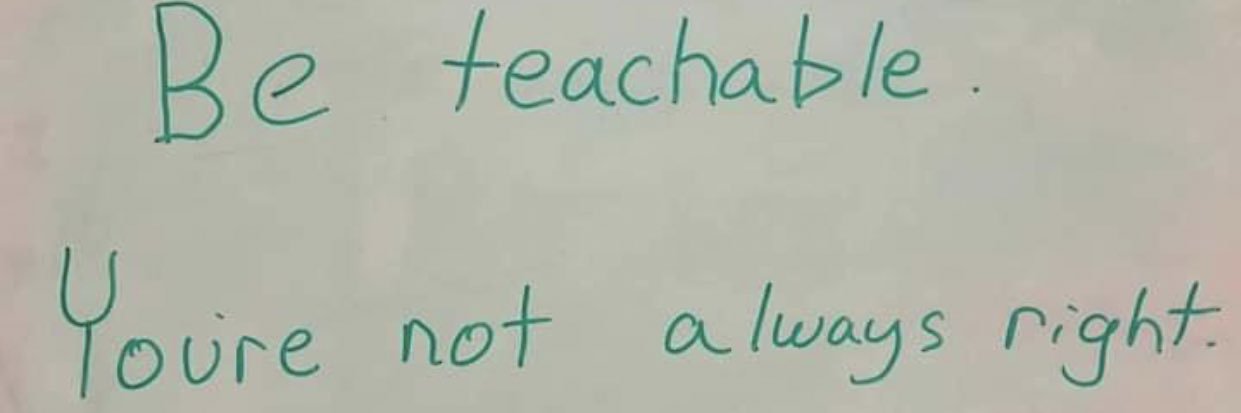 Be teachable.
You're not always right.